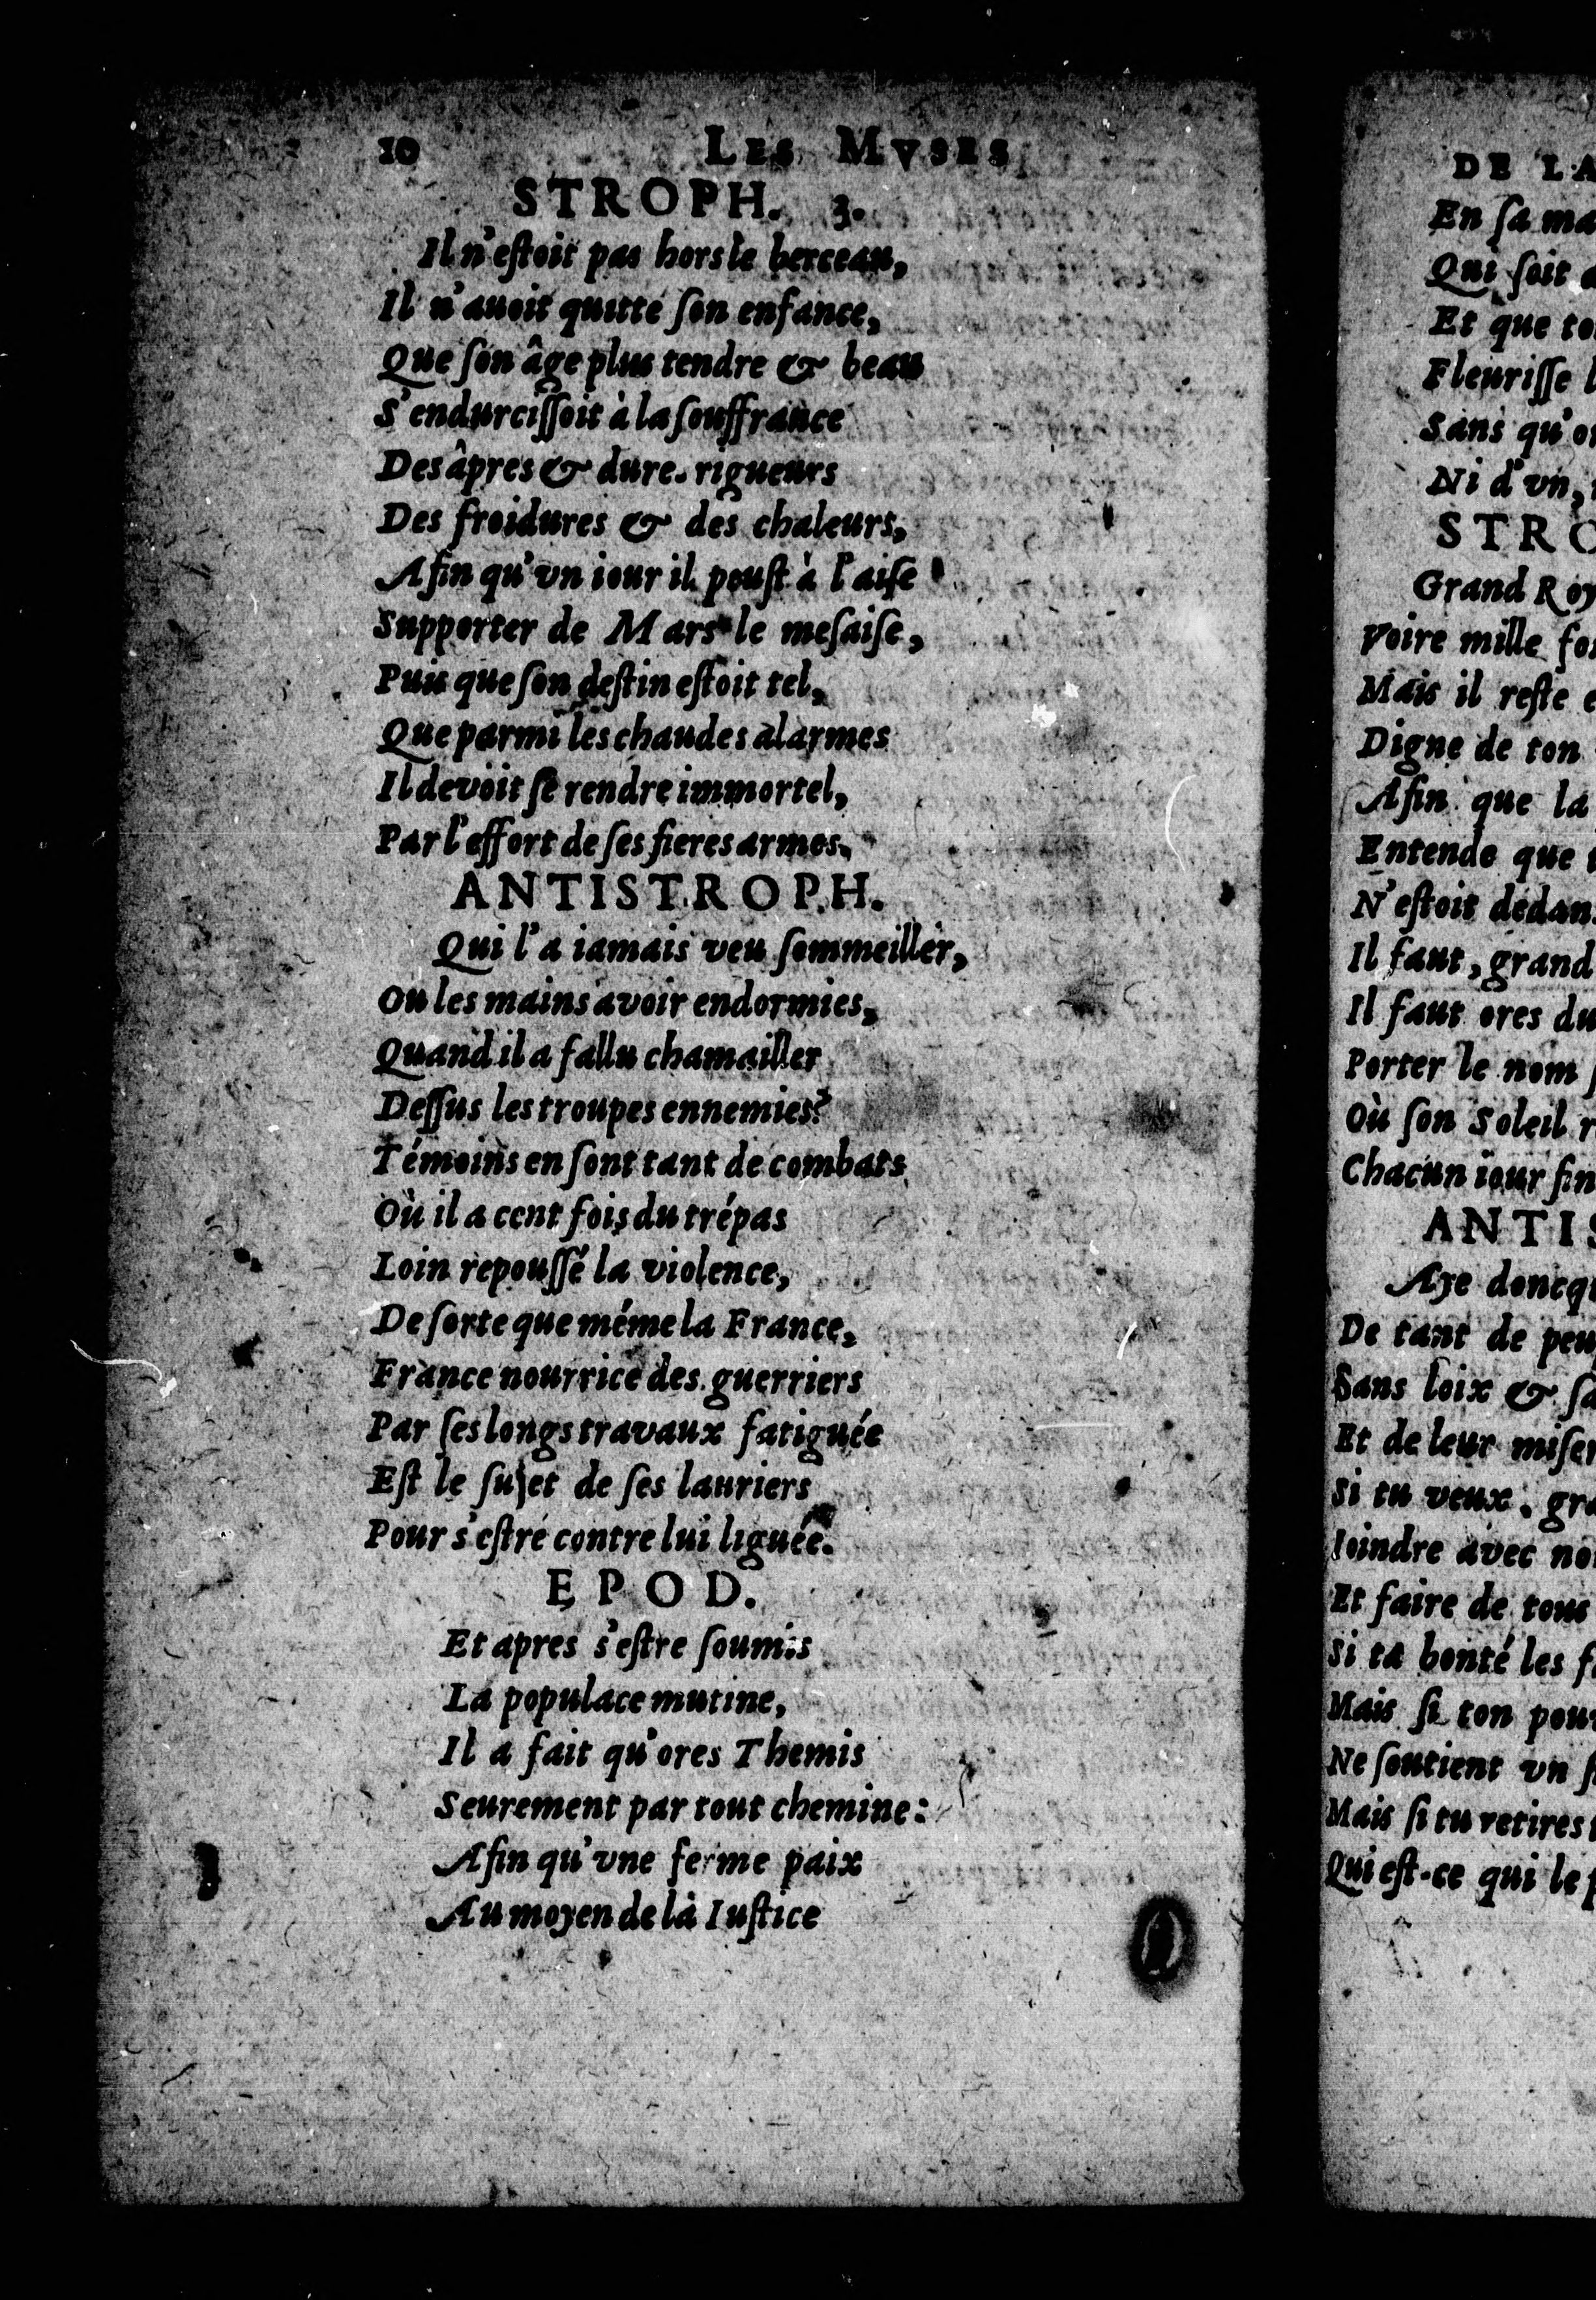 10 LES MVSES
STROPH. 3.
Il n'eſtoit pas hors le berceau,
Il n'auoit quitté ſon enfance,
Que ſon âge plus tendre & beau
S'endurciſſoit à la ſouffrance
Des âpres & dure. rigueurs
Des froidures & des chaleurs,
Afin qu'vn iour il peuſt à l'aiſe
Supporter de Mars le meſaiſe,
Puis que ſon deſtin eſtoit tel,
Que parmi les chaudes alarmes
Il devoit ſe rendre immortel,
Par l'effort de ſes fieres armes.
ANTISTROPH.
Qui l'a iamais veu ſommeiller,
Ou les mains avoir endormies,
Quand il a fallu chamailler
Deſſus les troupes ennemies?
Témoins en ſont tant de combats
Où il a cent fois du trépas
Loin repouſſé la violence,
De ſorte que méme la France,
France nourrice des guerriers
Par ſes longs travaux fatiguée
Eſt le ſujet de ſes lauriers
Pour s'eſtre contre lui liguée.
EPOD.
Et apres s'eſtre ſoumis
La populace mutine,
Il a fait qu'ores Themis
Seurement par tout chemine:
Afin qu'vne ferme paix
Au moyen de la Iuſtice
DE L'A
En ſa ma
Qui ſoit
Et que to
Fleuriſſe l
Sans qu'o
Ni d'vn,
STRO
Grand Roy
Voire mille fo
Mais il reſte e
Digne de ton
Afin que la
Entende que
N'eſtoit dedan
Il faut, grand
Il faut ores du
Porter le nom
Où ſon Soleil
Chacun iour fin
ANTIS
Aye doncq
De tant de peu
Sans loix & ſa
Et de leur miſer
Si tu veux, gra
Ioindre avec no
Et faire de tous
Si ta bonté les f
Mais ſi ton pou
Ne ſoutient vn
Mais ſi tu retires
Qui eſt-ce qui le p